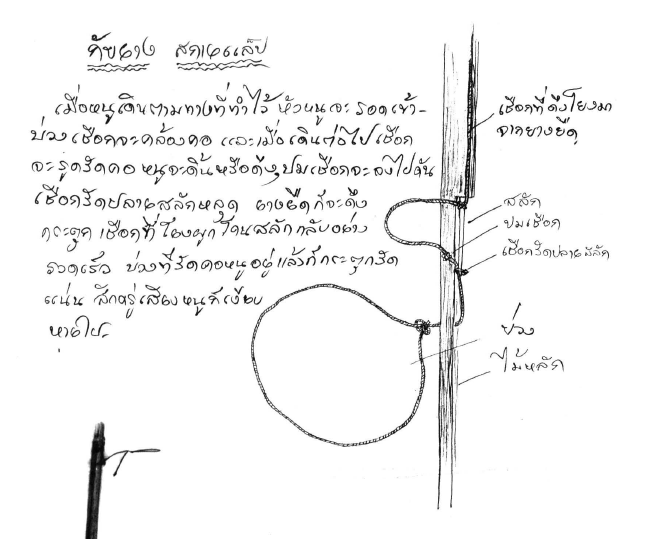 เมื่อหนูเดินตามทางที่ทำไว้ หัวหนูจะ รอดเข้า-
บ่วง เชือกจะคล้องคอ และเมื่อเดินต่อไป เชือก
จะรูดรัดคอ หนูจะดิ้นหรือดึง ปมเชือกจะลงไปดัน
เชือกรัดปลายสลักหลุด ยางยืดก็จะดึง
กระตูก เชือกที่โยงผูก โคนสลักกลับอย่าง
รวดเร็ว บ่วงที่รัดคอหนูอยู่แล้วก็กระตูกรัด
แน่น สักครู่เสียงหนูก็เงียบ
หายไป
เชือกที่ดึงโยงมา
จากยางยืด
สลัก
ปมเชือก
เชือกรัดปลายสลัก
บ่วง
ไม้หลัก